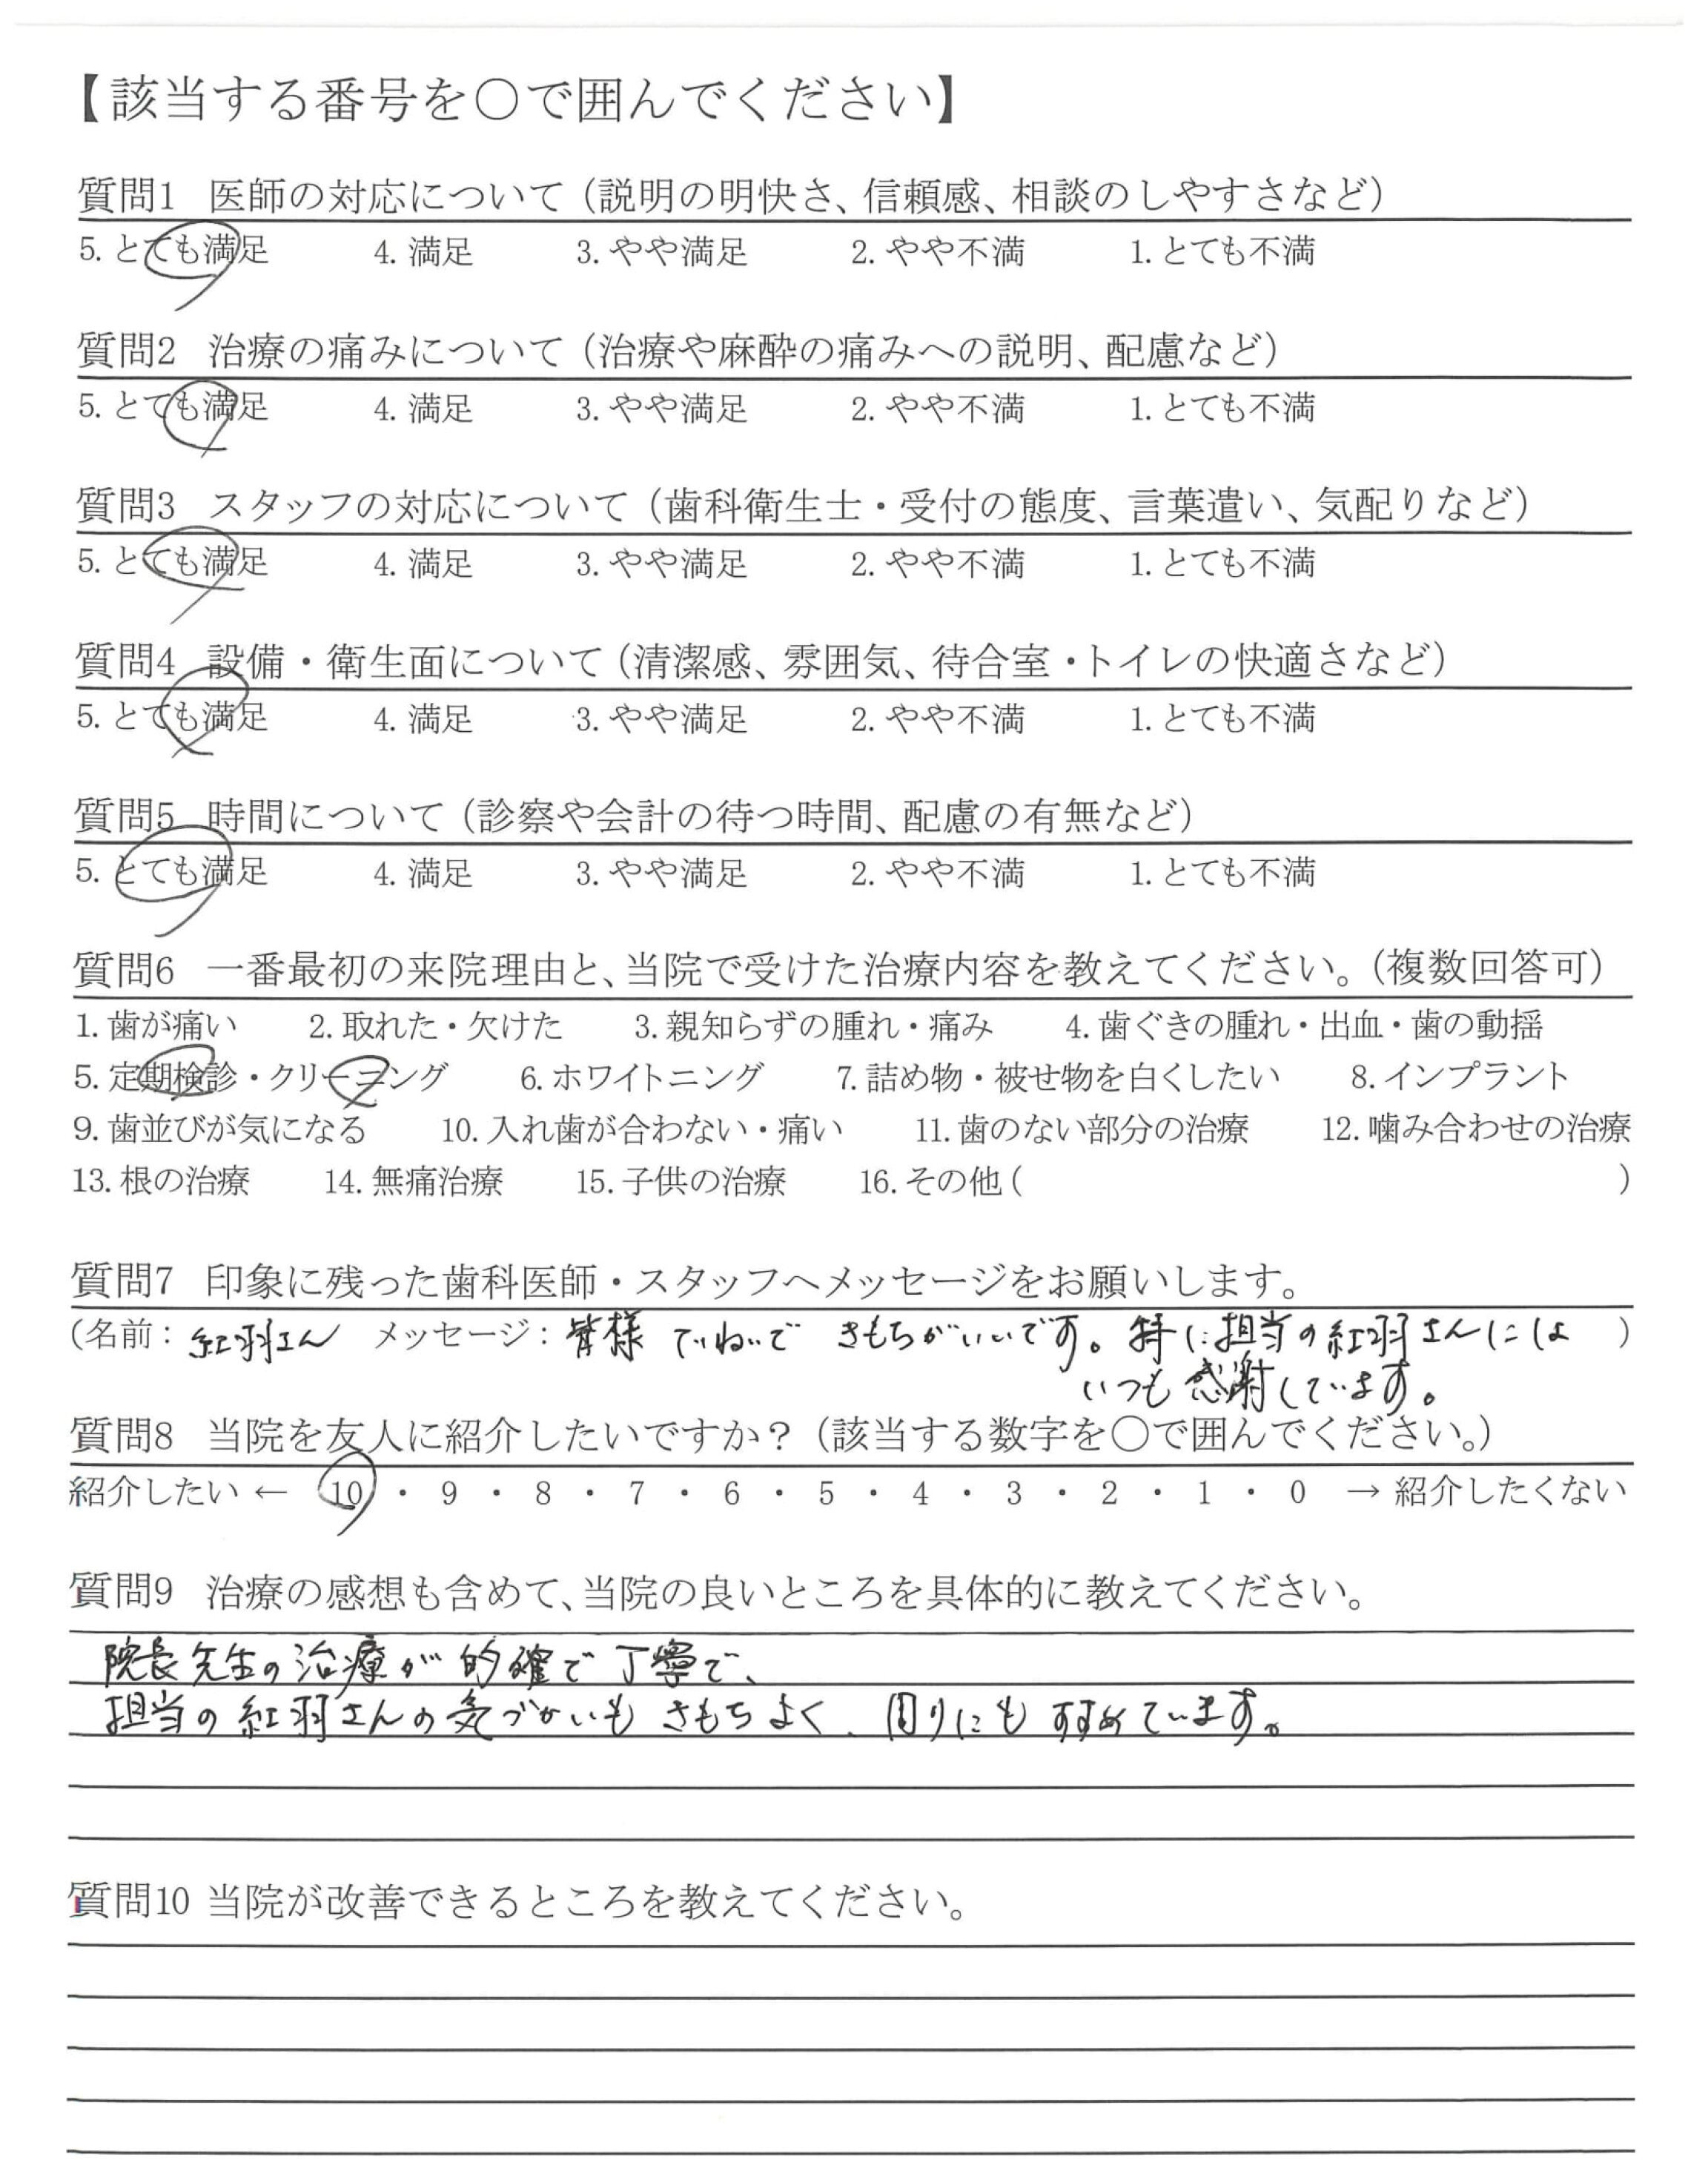 【該当する番号を〇で囲んでください】
質問1 医師の対応について（説明の明快さ、信頼感、相談のしやすさなど）
5. とても満足 4. 満足 3. やや満足 2. やや不満 1. とても不満
質問2 治療の痛みについて（治療や麻酔の痛みへの説明、配慮など）
5. とても満足 4. 満足 3. やや満足 2. やや不満 1. とても不満
質問3 スタッフの対応について（歯科衛生士・受付の態度、言葉遣い、気配りなど）
5. とても満足 4. 満足 3. やや満足 2. やや不満 1. とても不満
質問4 設備・衛生面について（清潔感、雰囲気、待合室・トイレの快適さなど）
5. とても満足 4. 満足 3. やや満足 2. やや不満 1. とても不満
質問5 時間について（診察や会計の待つ時間、配慮の有無など）
5. とても満足 4. 満足 3. やや満足 2. やや不満 1. とても不満
質問6 一番最初の来院理由と、当院で受けた治療内容を教えてください。（複数回答可）
1. 歯が痛い 2. 取れた・欠けた 3. 親知らずの腫れ・痛み 4. 歯ぐきの腫れ・出血・歯の動揺
5. 定期検診・クリーニング 6. ホワイトニング 7. 詰め物・被せ物を白くしたい 8. インプラント
9. 歯並びが気になる 10. 入れ歯が合わない・痛い 11. 歯のない部分の治療 12. 噛み合わせの治療
13. 根の治療 14. 無痛治療 15. 子供の治療 16. その他（ ）
質問7 印象に残った歯科医師・スタッフへメッセージをお願いします。
（名前：紅羽さん メッセージ：皆様 ていねいで きもちがいいです。特に担当の紅羽さんには ）
いつも感謝しています。
質問8 当院を友人に紹介したいですか？（該当する数字を〇で囲んでください。）
紹介したい ← 10 ・ 9 ・ 8 ・ 7 ・ 6 ・ 5 ・ 4 ・ 3 ・ 2 ・ 1 ・ 0 → 紹介したくない
質問9 治療の感想も含めて、当院の良いところを具体的に教えてください。
院長先生の治療が的確で丁寧で、
担当の紅羽さんの気づかいも きもちよく、周りにも すすめています。
質問10 当院が改善できるところを教えてください。